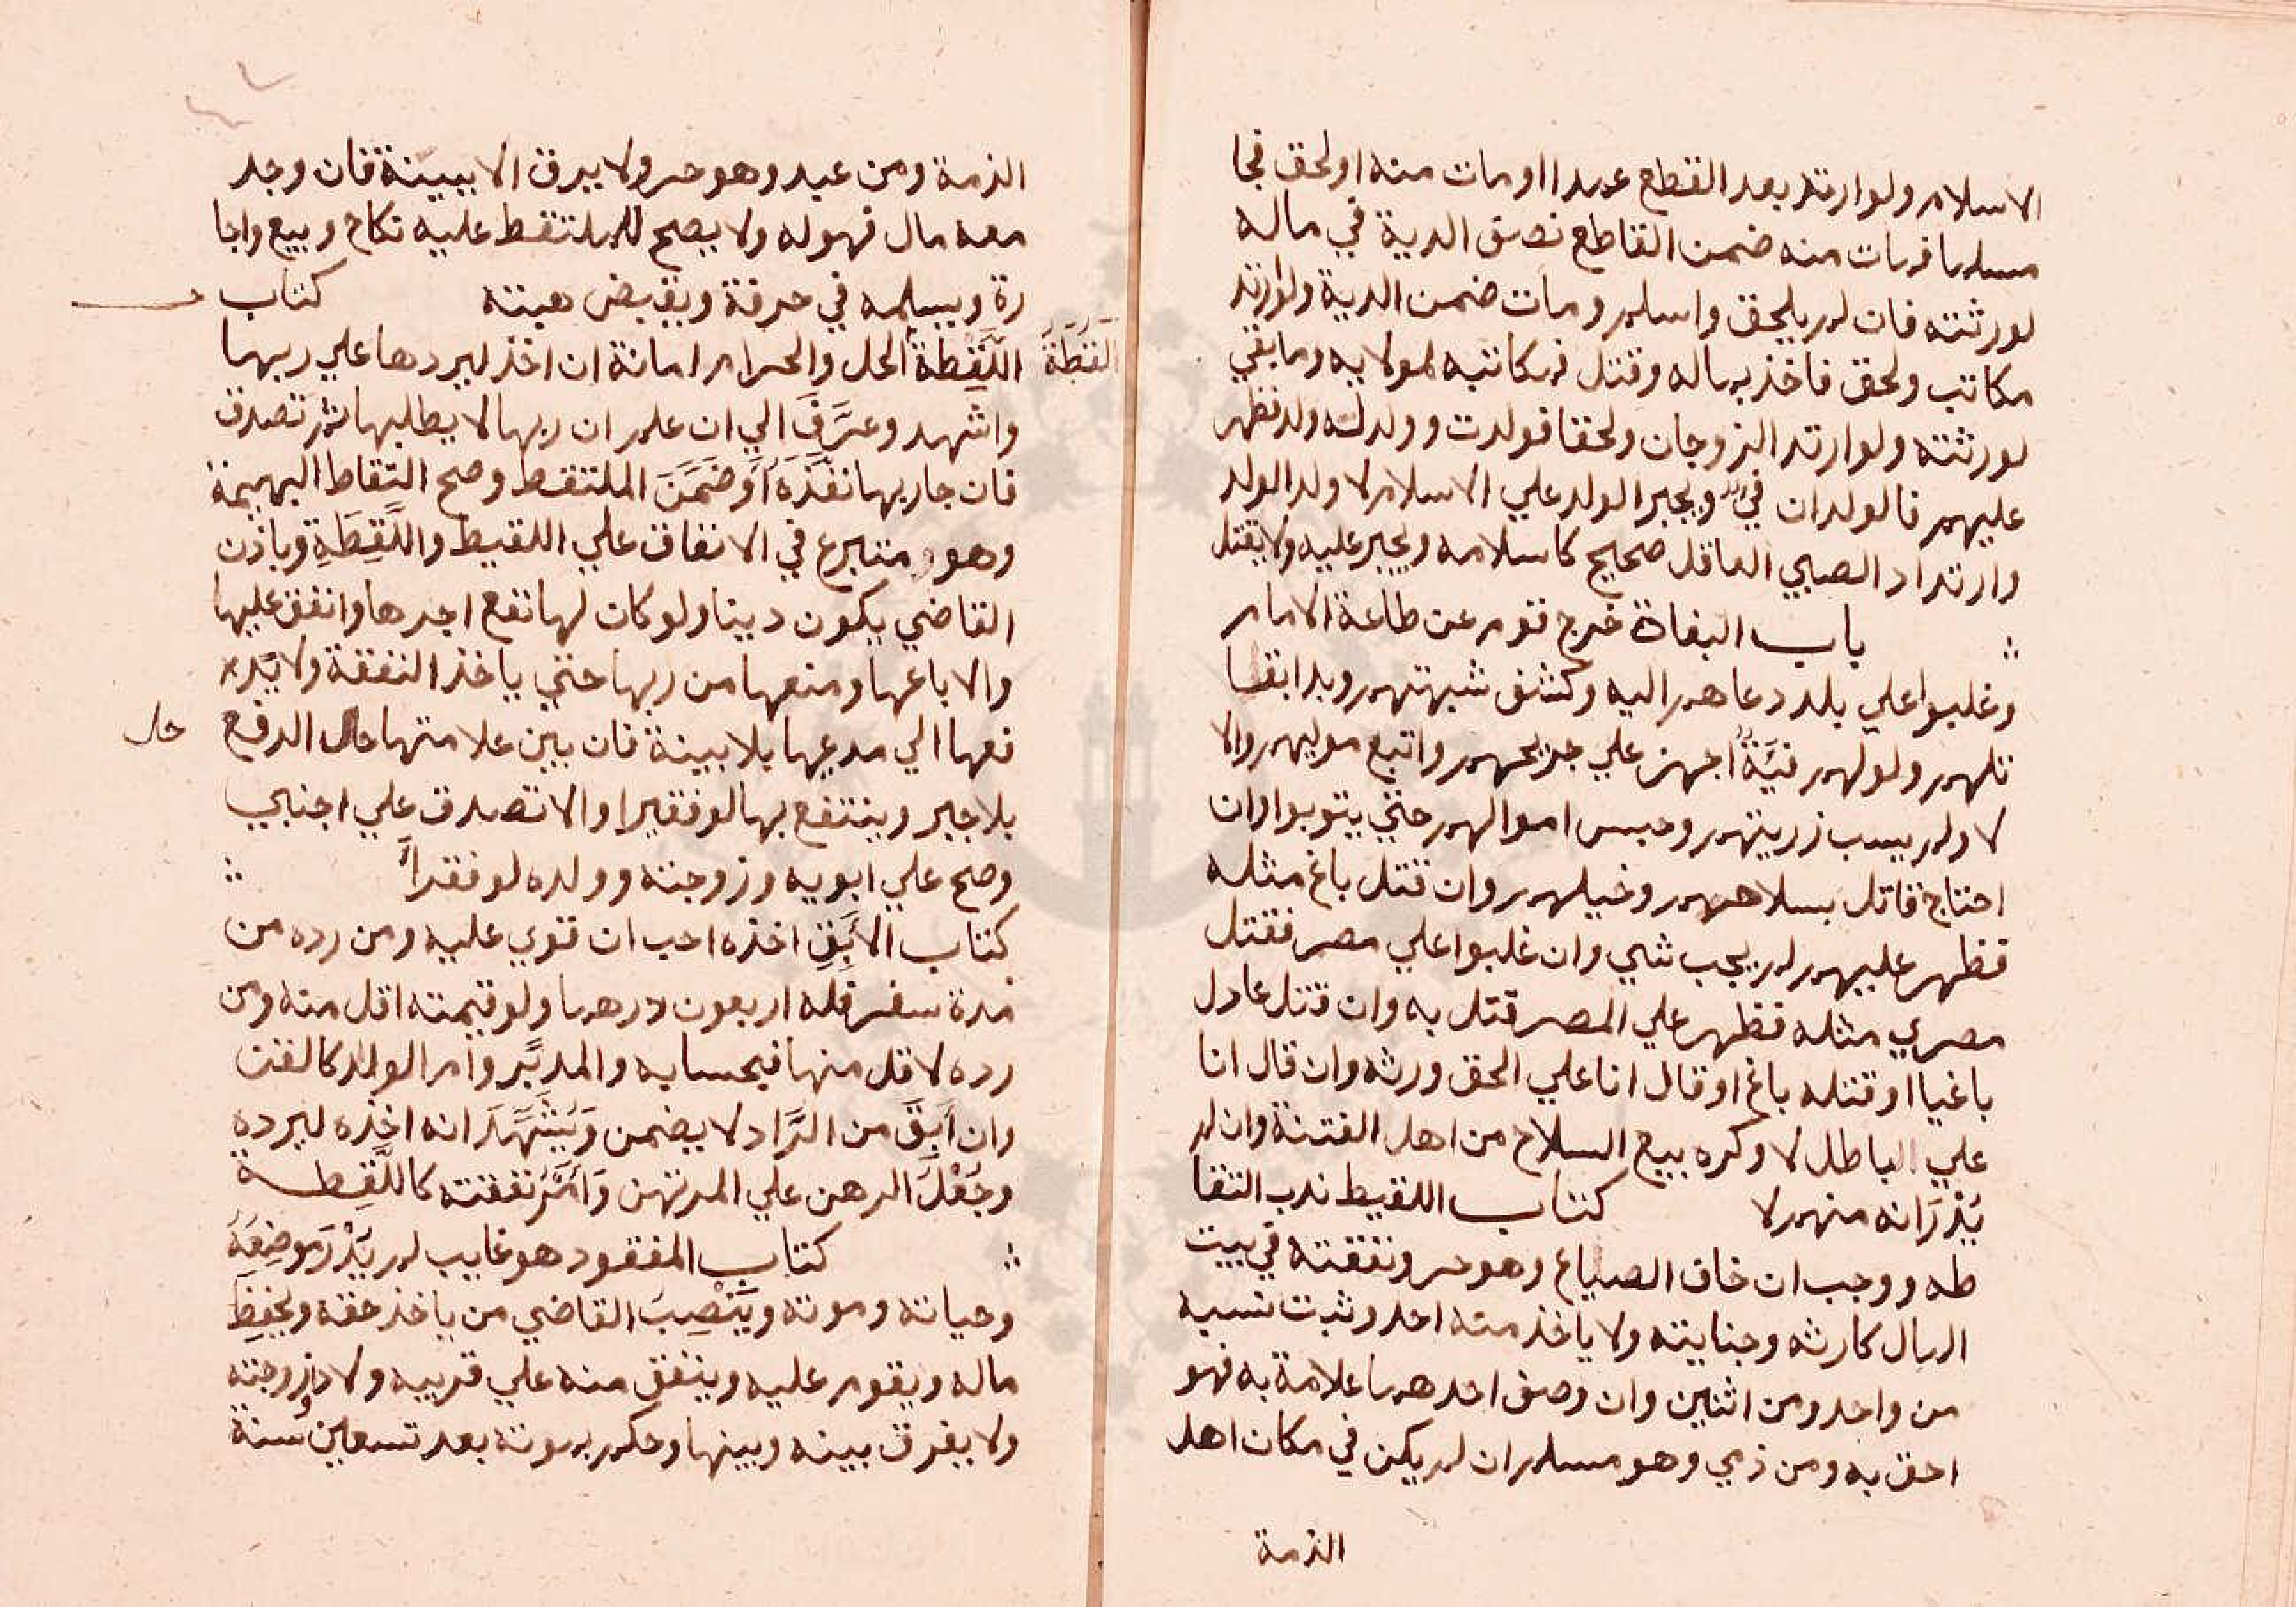 الاسلام ولو ارتد بعد القطع عمدا او مات منه او لحق فجا
مسلما فمات منه ضمن القاطع نصف الدية في ماله
لورثته فان لم يلحق واسلم ومات ضمن الدية ولو ارتد
مكاتب ولحق فاخذ بماله وقتل فمكاتبه لمولايه وما بقي
لورثته ولو ارتد الزوجان ولحقا فولدت وولد له ولد فظهر
عليهم فالولدان في ويجبر الولد علي الاسلام لا ولد الولد
وارتداد الصبي العاقل صحيح كاسلامه ويجبر عليه ولا يقتل
باب البغاة خرج قوم عن طاعة الامام
وغلبوا علي بلد دعاهم اليه وكشف شبهتهم وبدا بقتا
تلهم ولو لهم فيَّةٌ اجهز علي جريحهم واتبع موليهم والا
لا ولم يسب زريتهم وحبس اموالهم حتي يتوبوا وان
احتاج قاتل بسلاحهم وخيلهم وان قتل باغ مثله
فظهر عليهم لم يجب شي وان غلبوا علي مصر فقتل
مصري مثله فظهر علي المصر قتل به وان قتل عادل
باغيا او قتله باغ او قال انا علي الحق ورثه وان قال انا
علي الباطل لا وكره بيع السلاح من اهل الفتنة وان لم
يُدْرَ انه منهم لا كتاب اللقيط ندب التقا
طه ووجب ان خاف الضياع وهو حر ونفقته في بيت
المال كارثه وجنايته ولا ياخذ منه احد وثبت نسبه
من واحد ومن اثنين وان وصف احدهما علامة به فهو
احق به ومن ذمي وهو مسلم ان لم يكن في مكان اهل
الذمة
الذمة ومن عبد وهو حر ولا يرق الا ببينة فان وجد
معه مال فهو له ولا يصح للملتقط عليه نكاح وبيع واجا
رة ويسلمه في حرفة ويقبض هبته كتاب
اللُّقَطَة
اللَّقِطَةُ الحل والحرام امانة ان اخذ ليردها علي ربها
واشهد وعرَّفَ الي ان علم ان ربها لا يطلبها ثم تصدق
فان جا ربها نفَّذَه أوَ ضَمَّنَ الملتقط وصح التقاط البهيمة
وهو متبرع في الانفاق علي اللقيط واللَّقِطَةِ وباذن
القاضي يكون دينا ولو كان لها نفع اجرها وانفق عليها
والا باعها ومنعها من ربها حتي ياخذ النفقة ولا يد
فعها الي مدعيها بلا بينة فان بين علامتها حال الدفع
حال
بلا جبر وينتفع بها لو فقيرا والا تصدق علي اجنبي
وصح علي ابويه وزوجته وولده لو فقراً
كتاب الابَقِ اخذه احب ان قوي عليه ومن رده من
مدة سفر فله اربعون درهما ولو قيمته اقل منه ومن
رده لاقل منها فبحسابه والمدبَّر وام الولد كالقن
وان اَبِقَ من الرَّاد لا يضمن وَيَشْهَدَ انه اخذه ليرده
وجُعْلُ الرهن علي المرتهن وَأمْرُ نفقته كاللَّقِطة
كتاب المفقود هو غايب لم يُدْرَ موضِعُهُ
وحياته وموته ويَنْصِبُ القاضي من ياخذ حقه ويحفظ
ماله ويقوم عليه وينفق منه علي قريبه ولادا وزوجته
ولا يفرق بينه وبينها وحكم بموته بعد تسعين سنة